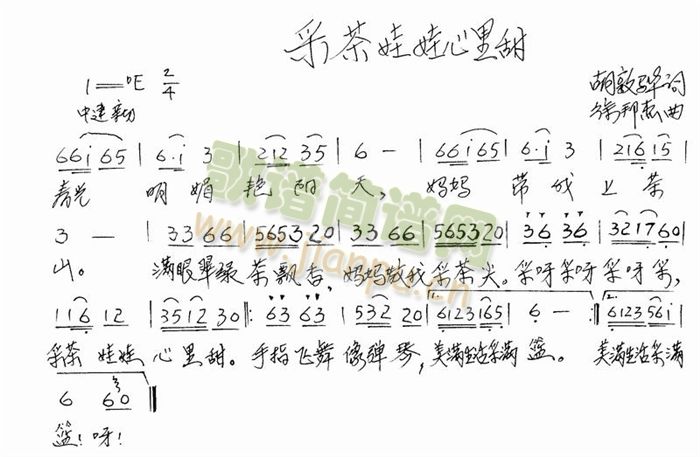 采茶娃娃心里甜
1=♭E 2/4
胡敦骅词
中速 亲切
徐邦杰曲
6 6 i 6 5 | 6·i 3 | 2 1 2 3 5 | 6 - | 6 6 i 6 5 | 6·i 3 | 2 1 6 1 5 |
春光 明媚 艳阳 天, 妈妈 带我 上茶
3 - | 3 3 6 6 | 5 6 5 3 2 0 | 3 3 6 6 | 5 6 5 3 2 0 | 3 6 3 6 | 3 2 1 7 6 0 |
山。 满眼翠绿 茶飘香, 妈妈教我 采茶尖。采呀采呀采呀采,
1 1 6 1 2 | 3 5 1 2 3 0 ‖: 6 3 6 3 | 5 3 2 2 0 | 6 1 2 3 1 6 5 | 6 - :‖ 6 1 2 3 5 6 i |
采茶 娃娃 心里甜。手指飞舞 像弹琴, 美满生活采满 篮。 美满生活采满
6 6 0 ‖
篮! 呀!
歌谱简谱网
www.jianpu.cn